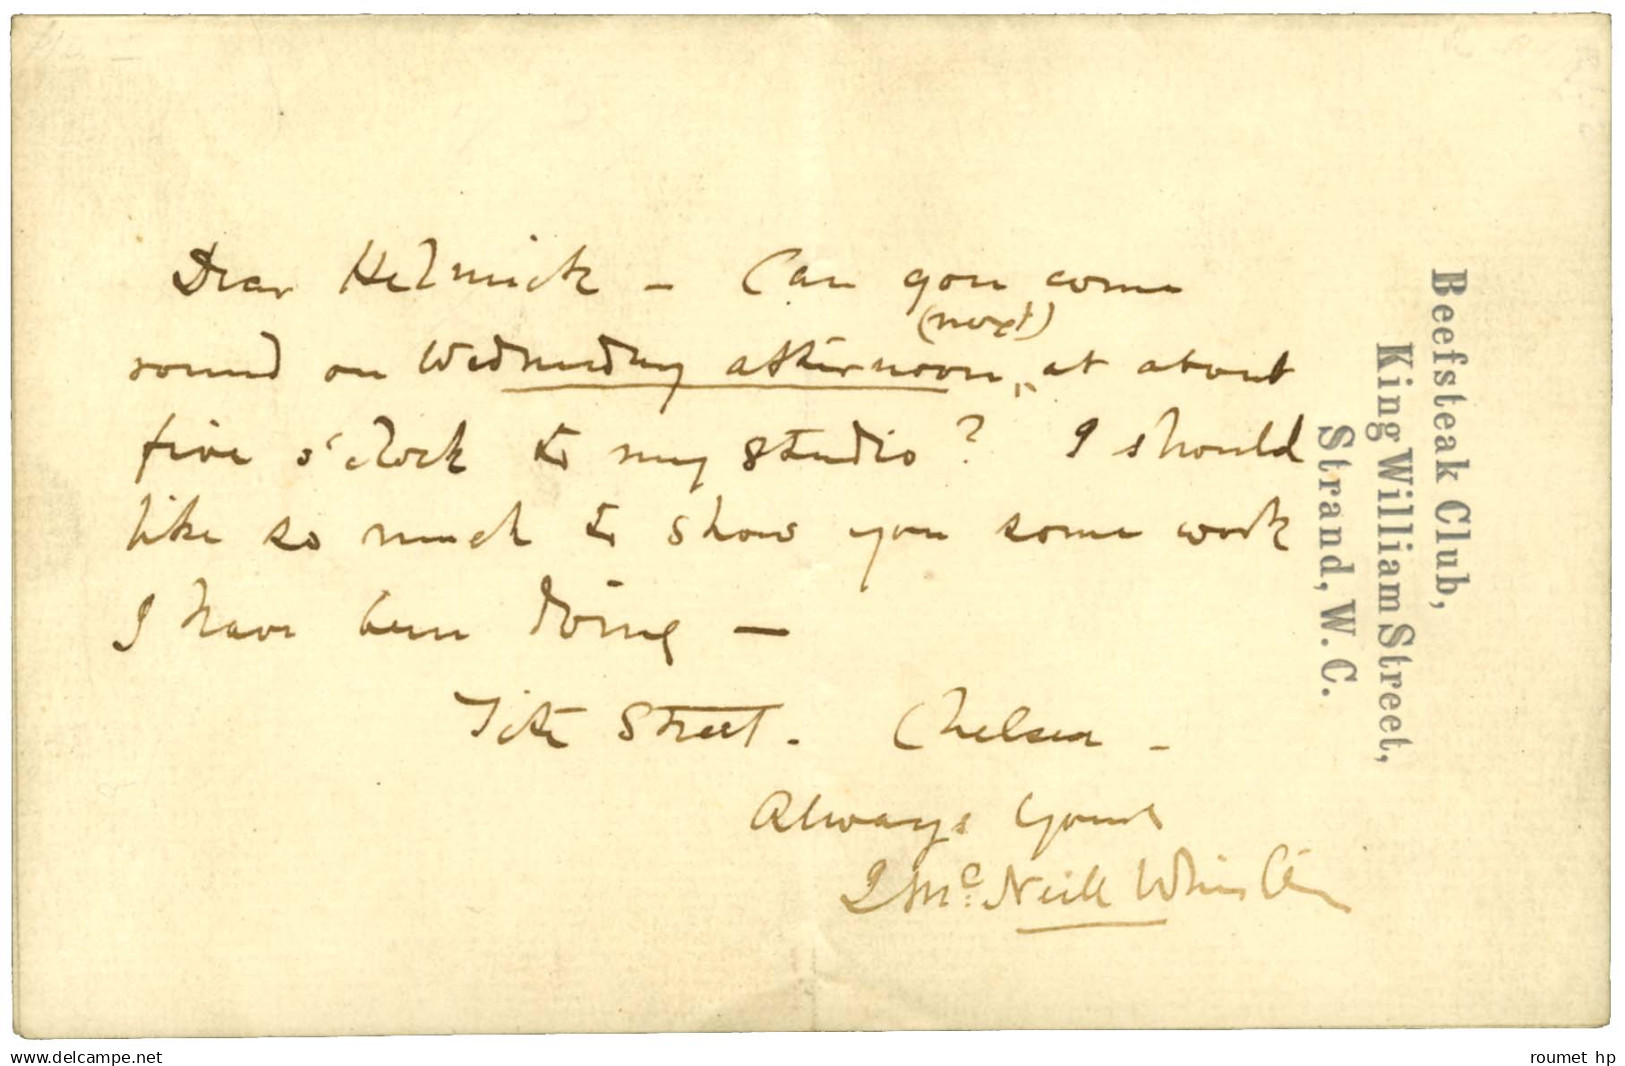 Beefsteak Club,
King William Street,
Strand, W. C.
Dear Helmick — Can you come
(next)
round on Wednesday afternoon, at about
five o'clock to my studio? I should
like so much to show you some work
I have been doing —
Tite Street. Chelsea —
Always Yours
J McNeill Whistler
www.delcampe.net
roumet hp